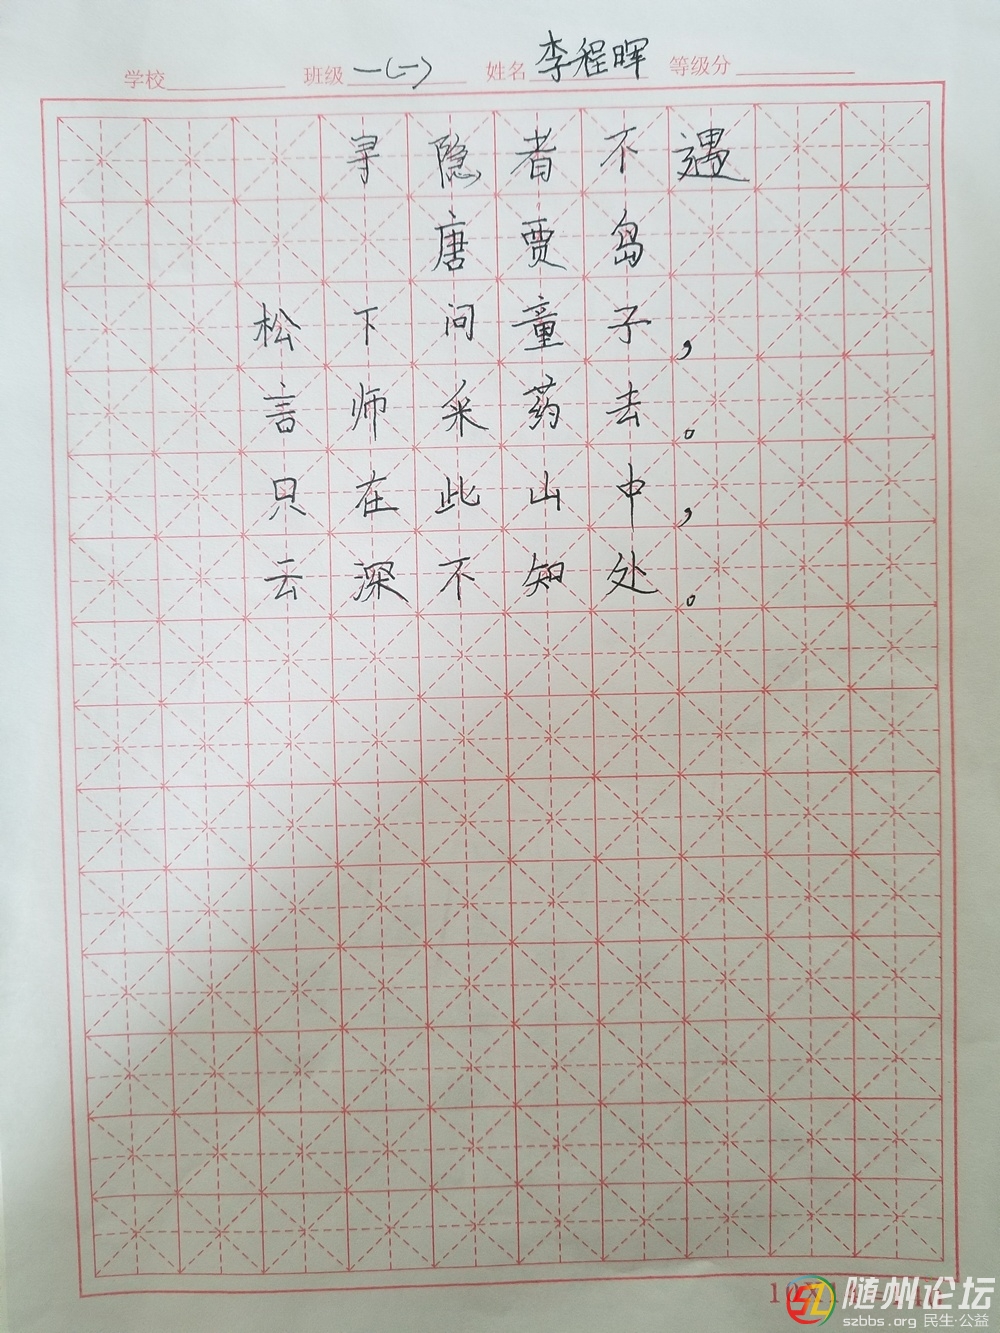 学校 班级 一(一) 姓名 李程晖 等级分
寻隐者不遇
唐贾岛
松下问童子，
言师采药去。
只在此山中，
云深不知处。
随州论坛
szbbs.org 民生·公益